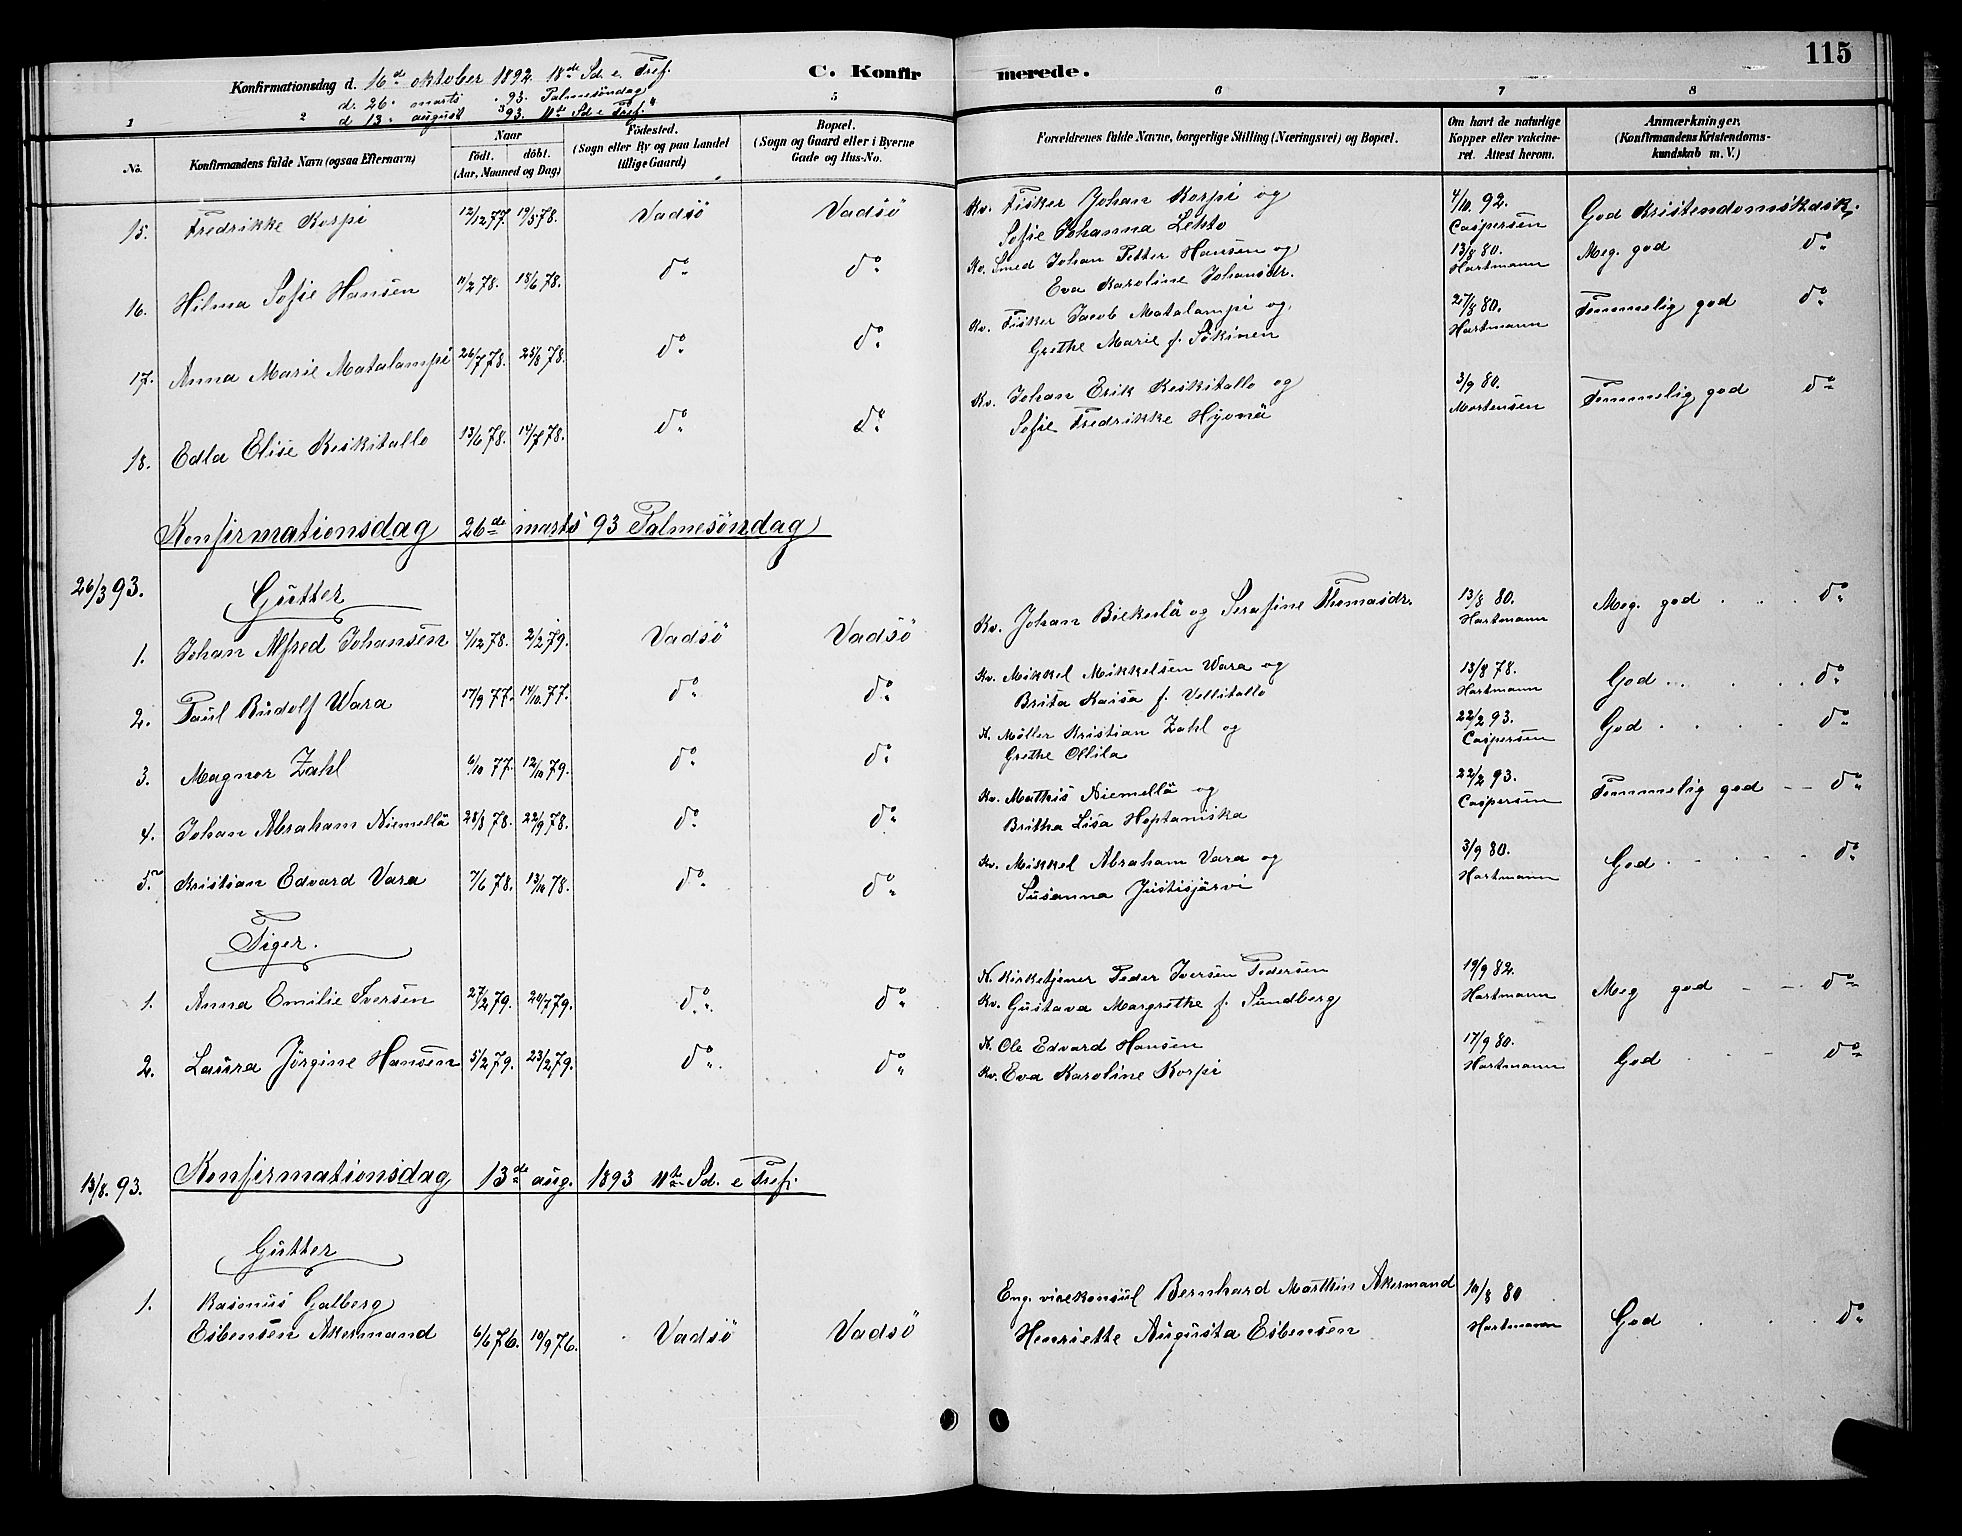 115
C. Konfirmerede.
Konfirmationsdag d. 16de oktober 1892. 18de Sd. e. Tref.
d. 26. marts 93. Palmesöndag
d 13. august 93. 11te Sd e Tref.
1 2 5 6 7 8
No. Konfirmandens fulde Navn (ogsaa Efternavn) Naar födt. döbt. (Aar, Maaned og Dag) Födested. (Sogn eller By og paa Landet tillige Gaard) Bopæl. (Sogn og Gaard eller i Byerne Gade og Hus-No. Forældrenes fulde Navne, borgerlige Stilling (Næringsvei) og Bopæl. Om havt de naturlige Kopper eller vakcineret. Attest herom. Anmærkninger, (Konfirmandens Kristendomskundskab m. V.)
15. Fredrikke Korpi 12/12 77. 19/5 78. Vadsö Vadsö Kv. Fisker Johan Korpi og 4/10 92. God Kristendomskdsk.
Sofie Johanna Lehto Caspersen
16. Hilma Sofie Hansen 11/2 78. 18/6 78. do do Kv. Smed Johan Petter Hansen og 13/8 80. Meg. god do
Eva Karoline Johansdr. Hartmann
17. Anna Marie Matalampi 26/7 78. 25/8 78. do do Kv. Fisker Jacob Matalampi og 27/8 80. Temmelig god do
Grethe Marie f. Sökinen Hartmann
18. Edla Elise Keskitallo 13/6 78. 14/7 78. do do Kv. Johan Erik Keskitallo og 3/9 80. Temmelig god do
Sofie Fredrikke Hyönä Mortensen
Konfirmationsdag 26de marts 93 Palmesöndag
26/3 93. Gutter
1. Johan Alfred Johansen 4/12 78. 2/2 79. Vadsö Vadsö Kv. Johan Biekulä og Serafine Thomasdr. 13/8 80. Hartmann Meg. god do
2. Paul Rudolf Wara 17/9 77. 14/10 77. do do Kv. Mikkel Mikkelsen Wara og 13/8 78. God do
Brita Kaisa f. Vellitallo Hartmann
3. Magnor Zahl 6/10 77. 12/10 79. do do K. Möller Kristian Zahl og 22/2 93. God do
Grethe Ollila Caspersen
4. Johan Abraham Niemellä 28/8 78. 22/9 78. do do Kv. Mathis Niemellä og 22/2 93. Temmelig god do
Britha Lisa Heptaniska Caspersen
5. Kristian Edvard Vara 7/6 78. 13/10 78. do do Kv. Mikkel Abraham Vara og 3/9 80. God do
Susanna Justisjärvi Hartmann
Piger.
1. Anna Emilie Iversen 27/2 79. 20/7 79. do do K. Kirketjener Peder Iversen Pedersen 19/9 82. Meg god do
Kv. Gustava Margrethe f. Sundberg Hartmann
2. Laura Jörgine Hansen 5/2 79. 23/2 79. do do K. Ole Edvard Hansen 17/9 80. God do
Kv. Eva Karoline Korpi Hartmann
13/8. 93. Konfirmationsdag 13de aug. 1893 11te Sd. e Tref.
Gutter
1. Rasmus Galberg Eng. vicekonsul Bernhard Marthin Akermand 10/8 80
Esbensen Akermand 6/6 76. 10/9 76. Vadsö Vadsö Henriette Augusta Esbensen Hartmann God do